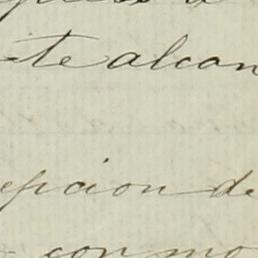 te alcan
epcion de
con mo